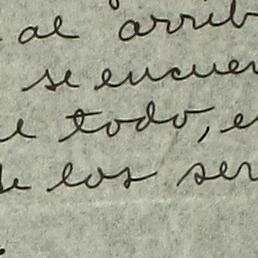 al arrib
se encuen
e todo, e
se los ser